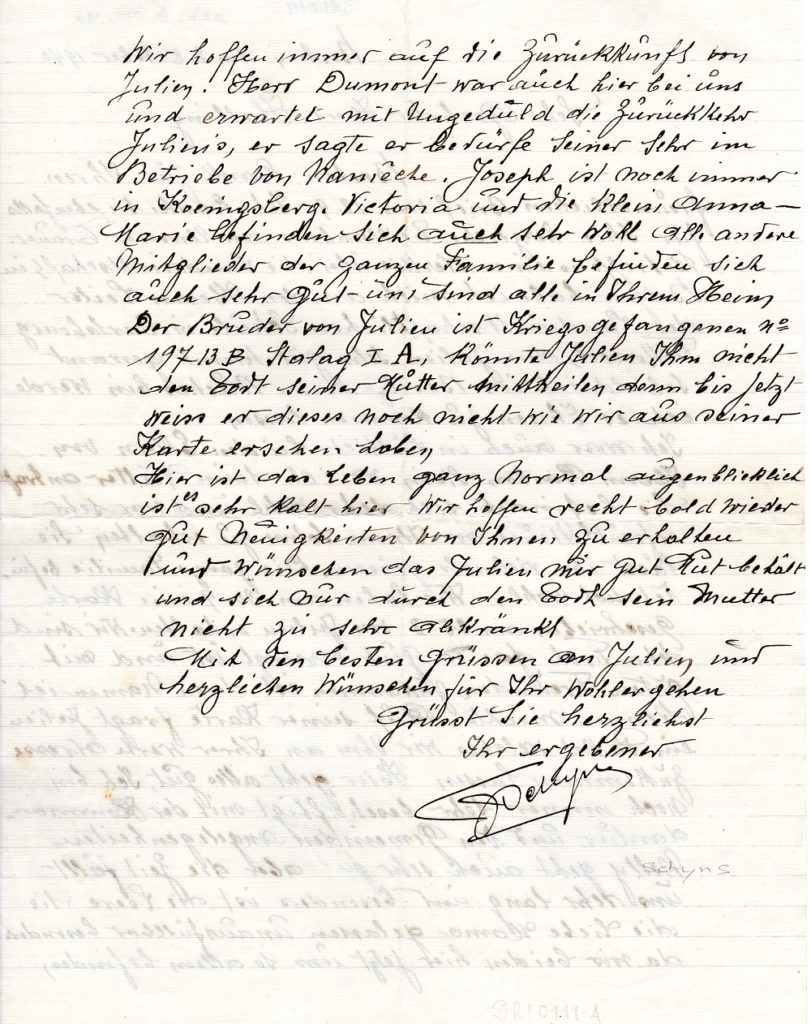 Wir hoffen immer auf die Zurückkunft von
Julien. Herr Dumont war auch hier bei uns
und erwartet mit Ungeduld die Zurückkehr
Julien's, er sagte er bedürfe seiner sehr im
Betriebe von Hanièche. Joseph ist noch immer
in Koenigsberg. Victoria und die klein Anna-
Marie befinden sich auch sehr wohl alle andere
Mitglieder der ganzen Familie befinden sich
auch sehr gut - und sind alle in Ihrem Heim
Der Bruder von Julien ist Kriegsgefangenen No
19713 B Stalag I A, könnte Julien Ihm nicht
den Todt seiner Mutter mittheilen denn bis jetzt
weiss er dieses noch nicht wie wir aus seiner
Karte ersehen haben
Hier ist das Leben ganz normal augenblicklich
ist es sehr kalt hier Wir hoffen recht bald wieder
gut Neuigkeiten von Ihnen zu erhalten
und wünschen das Julien nur gut Mut behält
und sich nur durch den Todt sein Mutter
nicht zu sehr abkränkt
Mit den besten Grüssen an Julien, und
herzlichen Wünschen für Ihr Wohlergehen
Grüsst Sie herzlichst
Ihr ergebener
Schyns
schyns